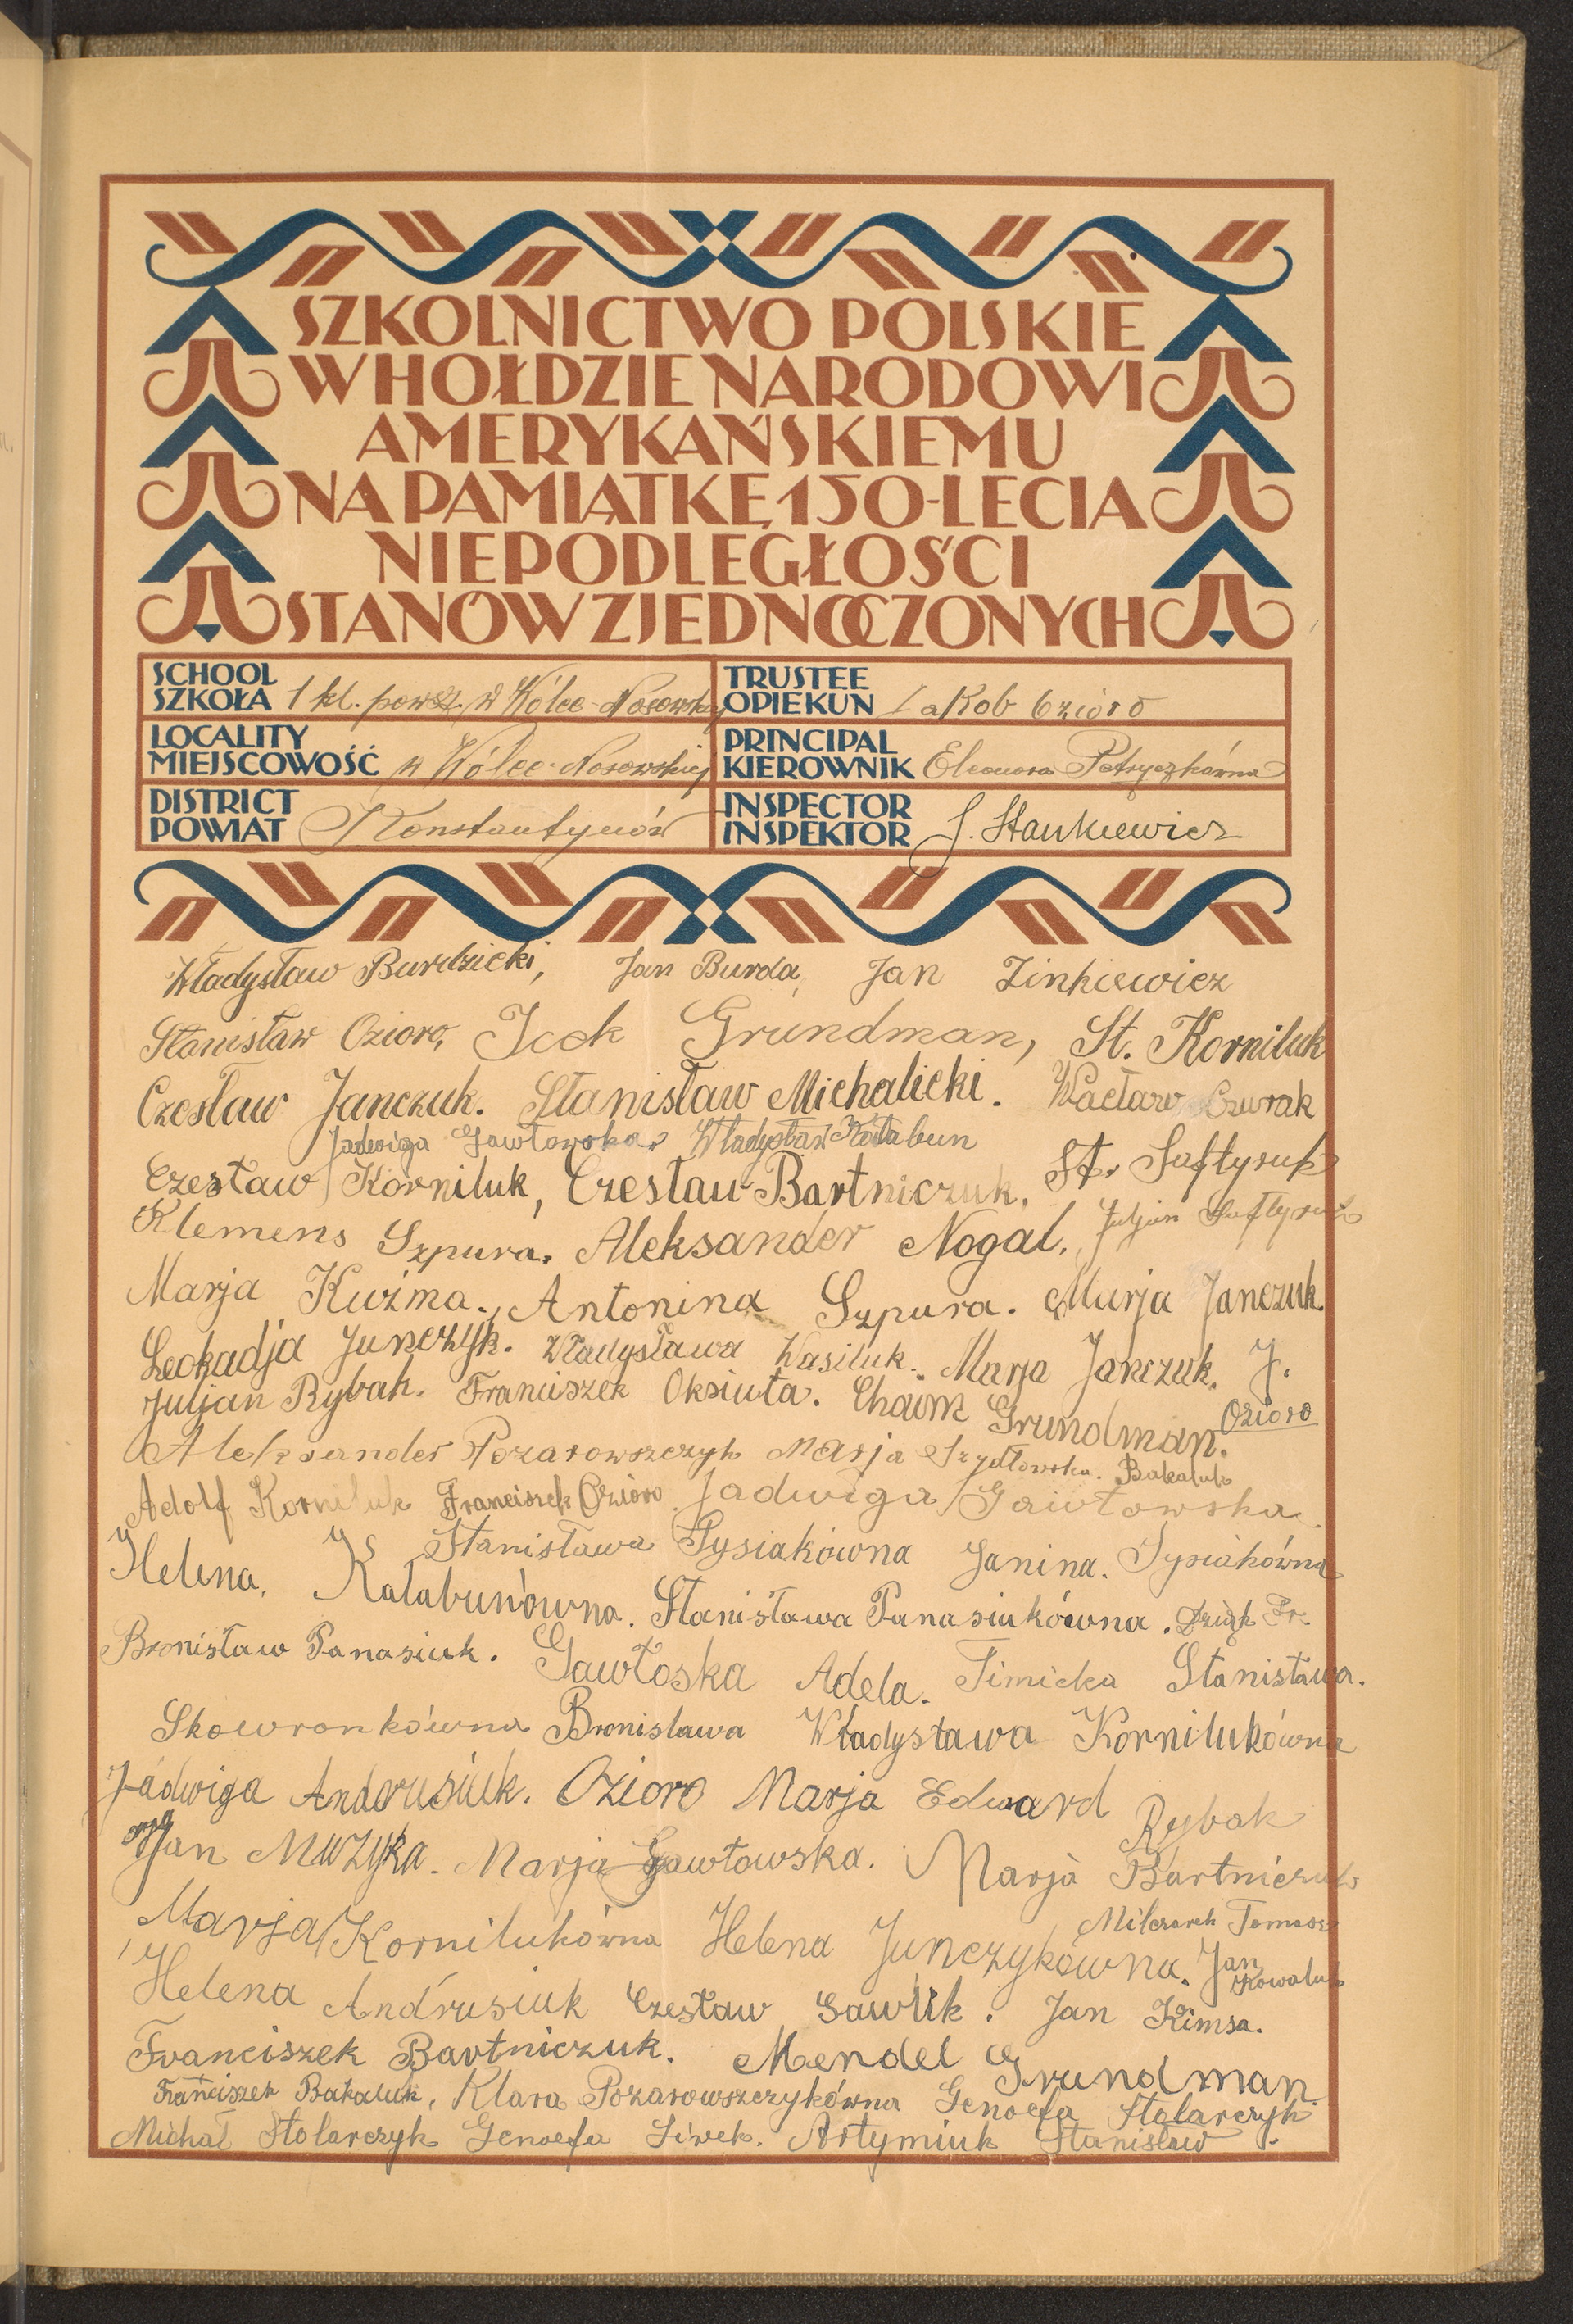 SZKOLNICTWO POLSKIE
W HOŁDZIE NARODOWI
AMERYKAŃSKIEMU
NA PAMIĄTKĘ 150-LECIA
NIEPODLEGŁOŚCI
STANÓW ZJEDNOCZONYCH
SCHOOL
SZKOŁA 1 kl. powsz. w Kólce-Nosowskiej
TRUSTEE
OPIEKUN Jakob Ozioro
LOCALITY
MIEJSCOWOŚĆ w Kólce-Nosowskiej
PRINCIPAL
KIEROWNIK Eleonora Petryczkówna
DISTRICT
POWIAT Konstantynów
INSPECTOR
INSPEKTOR J. Stankiewicz
Władysław Burdzicki, Jan Burda, Jan Zinkiewicz
Stanisław Ozioro, Icek Grundman, St. Korniluk
Czesław Janczuk. Stanisław Michalicki. Wacław
Jadwiga Gawłowska, Władysław Kałabun
Czesław Korniluk, Czesław Bartniczuk. St. Sałtyruk
Klemens Szpura. Aleksander Nogal. Juljan Sałtyruk
Marja Kuźma., Antonina Szpura. Marja Janczuk.
Leokadja Junczyk. Władysława Wasiluk. Marja Janczuk. J.
Ozioro
Juljan Rybak. Franciszek Oksiuta. Chaim Grundman.
Aleksander Pożarowszczyk Marja Szydłowska. Bakaluk
Adolf Korniluk Franciszek Ozioro Jadwiga Gawłowska.
Stanisława Pysiakówna Janina. Pysiakówna
Helena. Kałabunówna. Stanisława Panasiukówna. Dziąk Fr.
Bronisław Panasiuk. Gawłoska Adela. Timicka Stanisława.
Skowronkówna Bronisława Władysława Kornilukówna
Jadwiga Andrusiuk. Ozioro Marja Edward Rybak
Jan Muzyka. Marja Gawłowska. Marja Bartniczuk
Marja Kornilukówna Helena Junczykówna. Milczarek Tomasz
Jan Kowaluk
Helena Andrusiuk Czesław Gawlik. Jan Kimsa.
Franciszek Bartniczuk. Mendel Grundman
Franciszek Bakaluk, Klara Pożarowszczykówna Genoefa Stolarczyk
Michał Stolarczyk Genoefa Siwek. Artymiuk Stanisław.